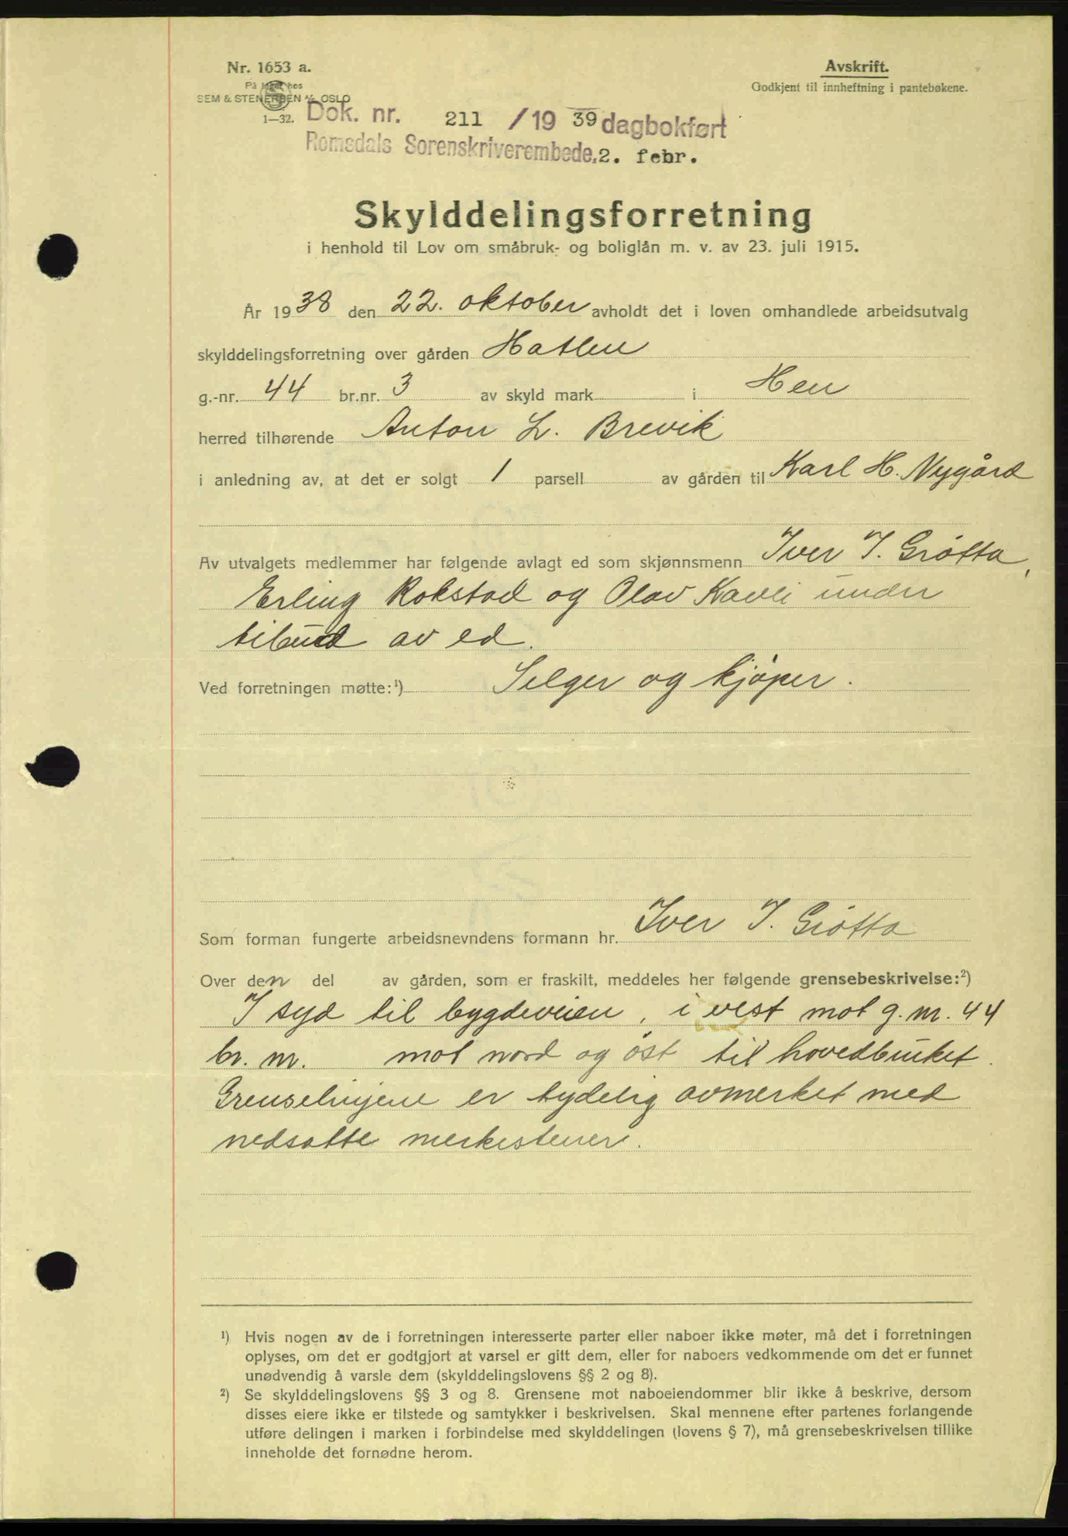 Nr. 1653 a.
På lager hos
SEM & STENERSEN A/S OSLO
1—32.
Avskrift.
Godkjent til innheftning i pantebøkene.
Dok. nr. 211 / 19 39 dagbokført
Romsdals Sorenskriverembede. 2. febr.
Skylddelingsforretning
i henhold til Lov om småbruk- og boliglån m. v. av 23. juli 1915.
År 1938 den 22. oktober avholdt det i loven omhandlede arbeidsutvalg
skylddelingsforretning over gården Hatlen
g.-nr. 44 br.nr. 3 av skyld mark i Hen
herred tilhørende Anton L. Brevik
i anledning av, at det er solgt 1 parsell av gården til Karl H. Nygård
Av utvalgets medlemmer har følgende avlagt ed som skjønnsmenn Iver I. Grøtta,
Erling Rokstad og Olav Kavli under
tilbud av ed.
Ved forretningen møtte:¹) Selger og kjøper.
Som forman fungerte arbeidsnevndens formann hr. Iver I. Grøtta
Over den del av gården, som er fraskilt, meddeles her følgende grensebeskrivelse:²)
I syd til bygdeveien, i vest mot g. nr. 44
br. nr. mot nord og øst til hovedbruket.
Grenselinjene er tydelig avmerket med
nedsatte merkestener.
¹) Hvis nogen av de i forretningen interesserte parter eller naboer ikke møter, må det i forretningen
oplyses, om det er godtgjort at varsel er gitt dem, eller for naboers vedkommende om det er funnet
unødvendig å varsle dem (skylddelingslovens §§ 2 og 8).
²) Se skylddelingslovens §§ 3 og 8. Grensene mot naboeiendommer blir ikke å beskrive, dersom
disses eiere ikke er tilstede og samtykker i beskrivelsen. Skal mennene efter partenes forlangende
utføre delingen i marken i forbindelse med skylddelingen (lovens § 7), må grensebeskrivelsen tillike
inneholde det fornødne herom.